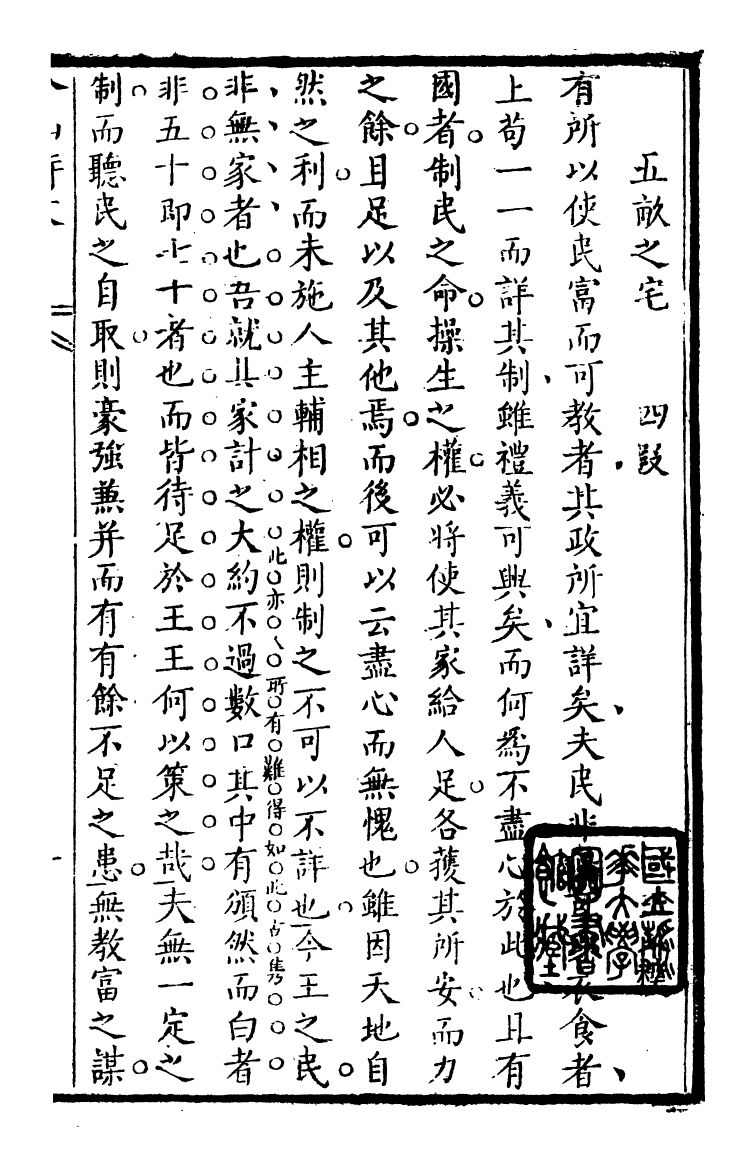 五畝之宅　四段
有所以使民富而可教者其政所宜詳矣夫民非衣食者
上苟一一而詳其制雖禮義可興矣而何爲不盡心於此也且有
國者制民之命操生之權必將使其家給人足各獲其所安而力
之餘且足以及其他焉而後可以云盡心而無愧也雖因天地自
然之利而未施人主輔相之權則制之不可以不詳也今王之民
此亦人所有難得如此古雋
非無家者也吾就其家計之大約不過數口其中有頒然而白者
非五十即七十者也而皆待足於王王何以策之哉夫無一定之
制而聽民之自取則豪強兼并而有有餘不足之患無教富之謀
國立
大學